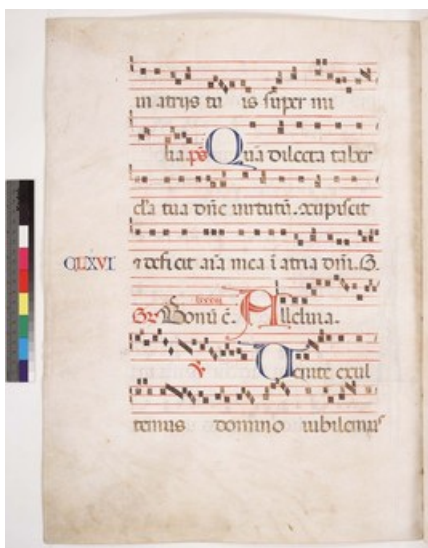 in atrijs tu is super mi
lia ps Quā dilecta taber
cl'a tua dn̄e uirtutū. xupiscit
CLXVI
⁊ deficit aīa mea ī atria dn̄i. G.
Gr Bonū ē. Alleluia.
℣. Uenite exul
temus domino iubilemus